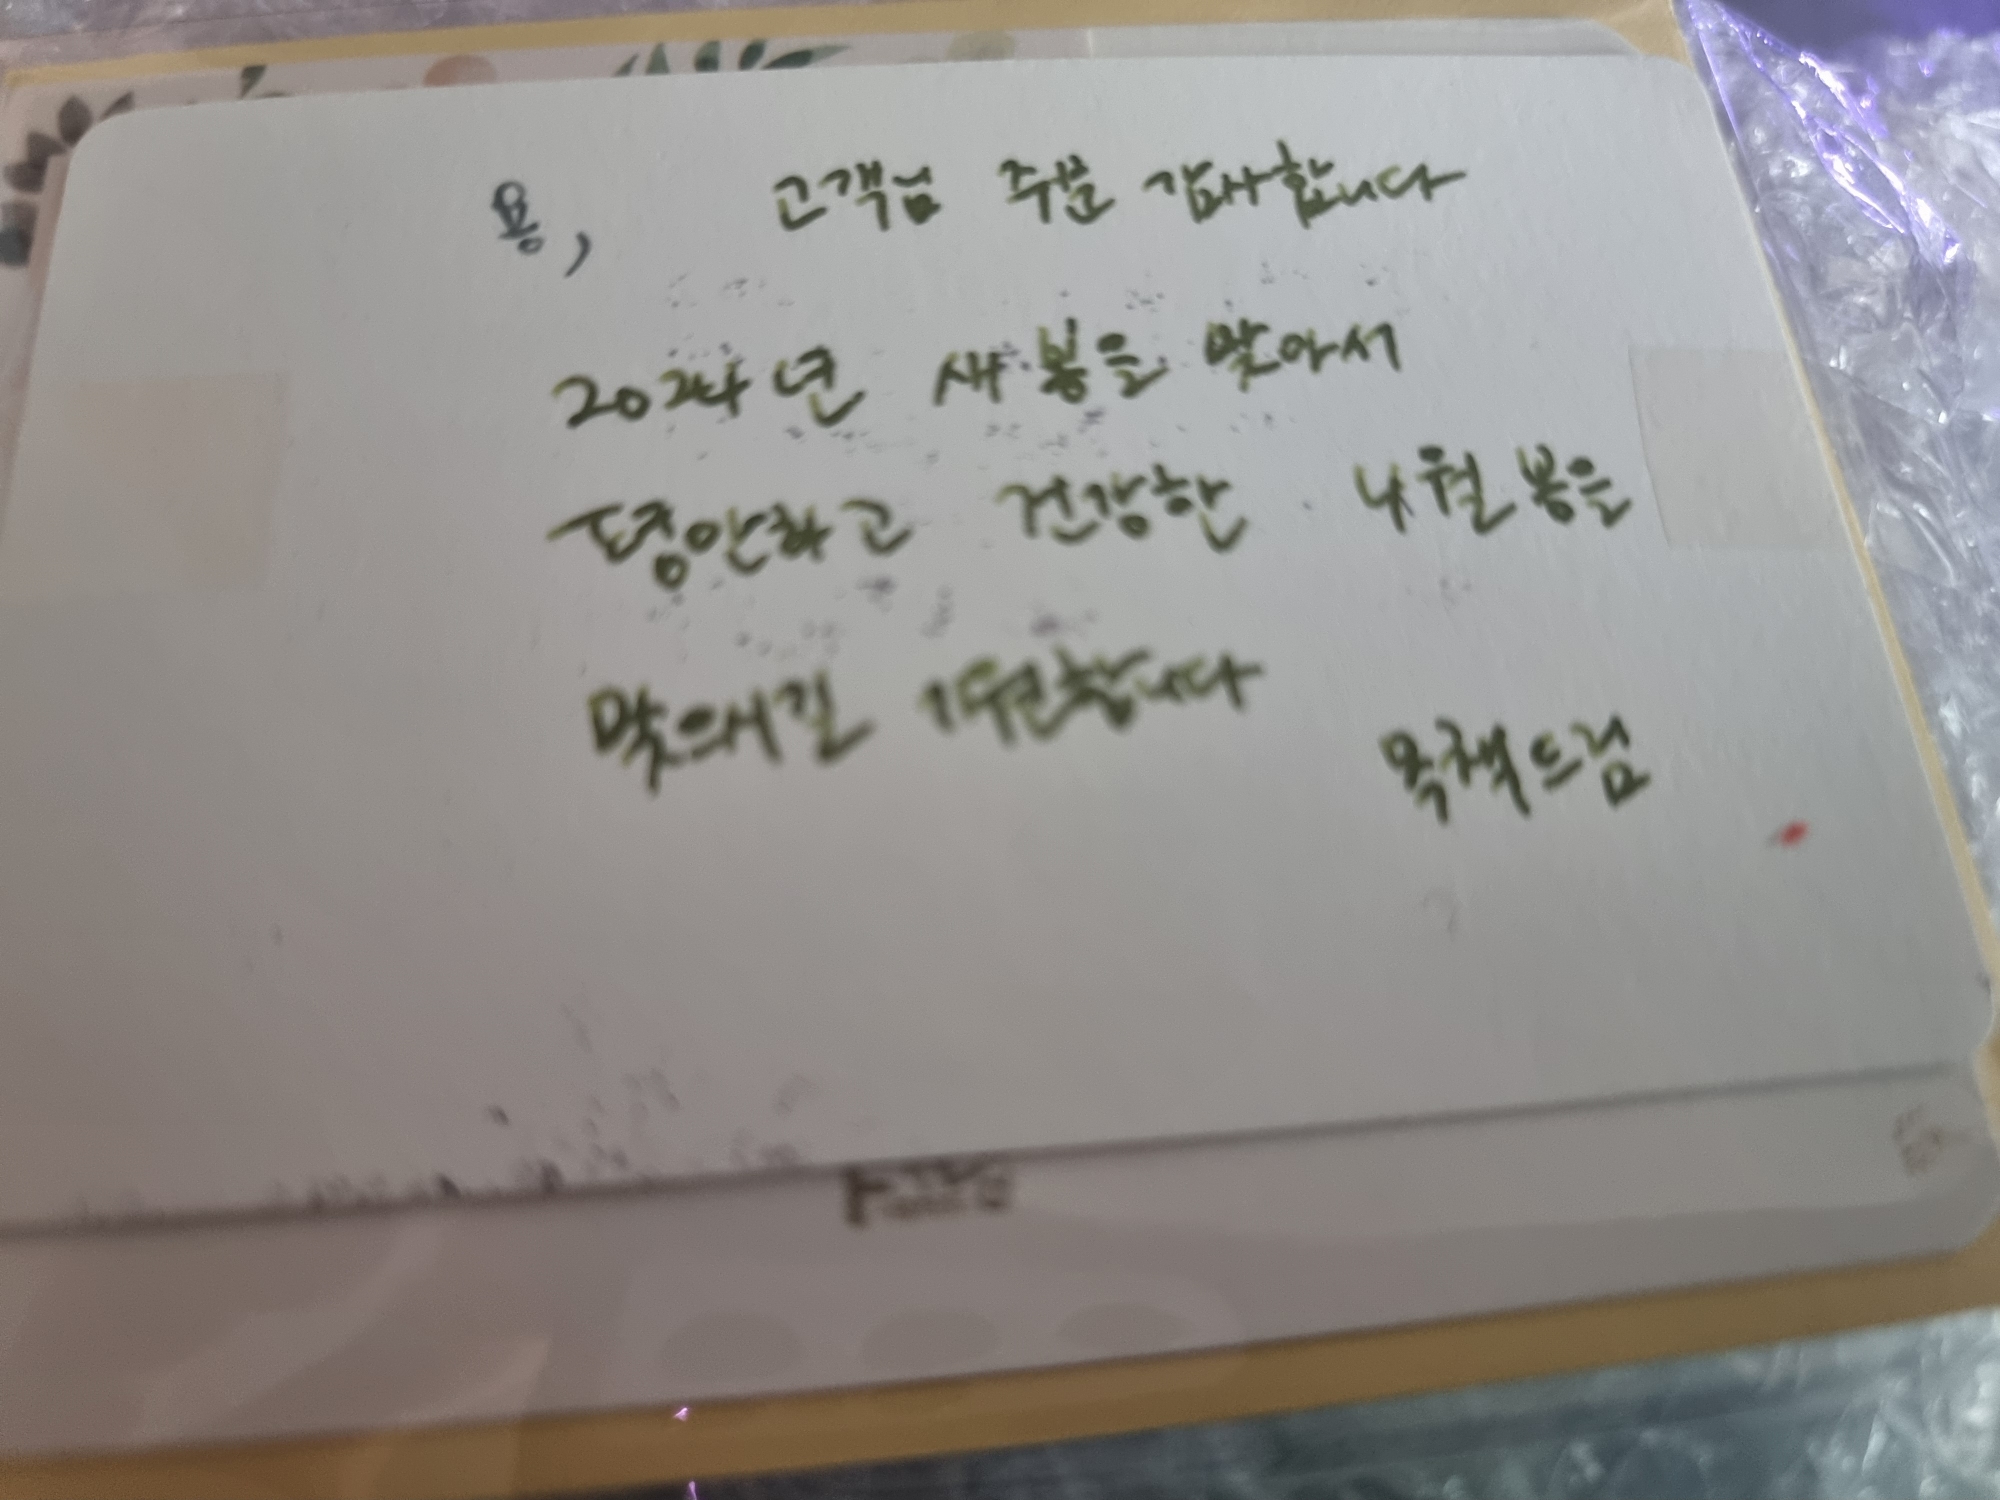 용, 고객님 주문 감사합니다
2024년 새봄을 맞아서
평안하고 건강한 4월 봄을
맞으시길 기원합니다
목책드림